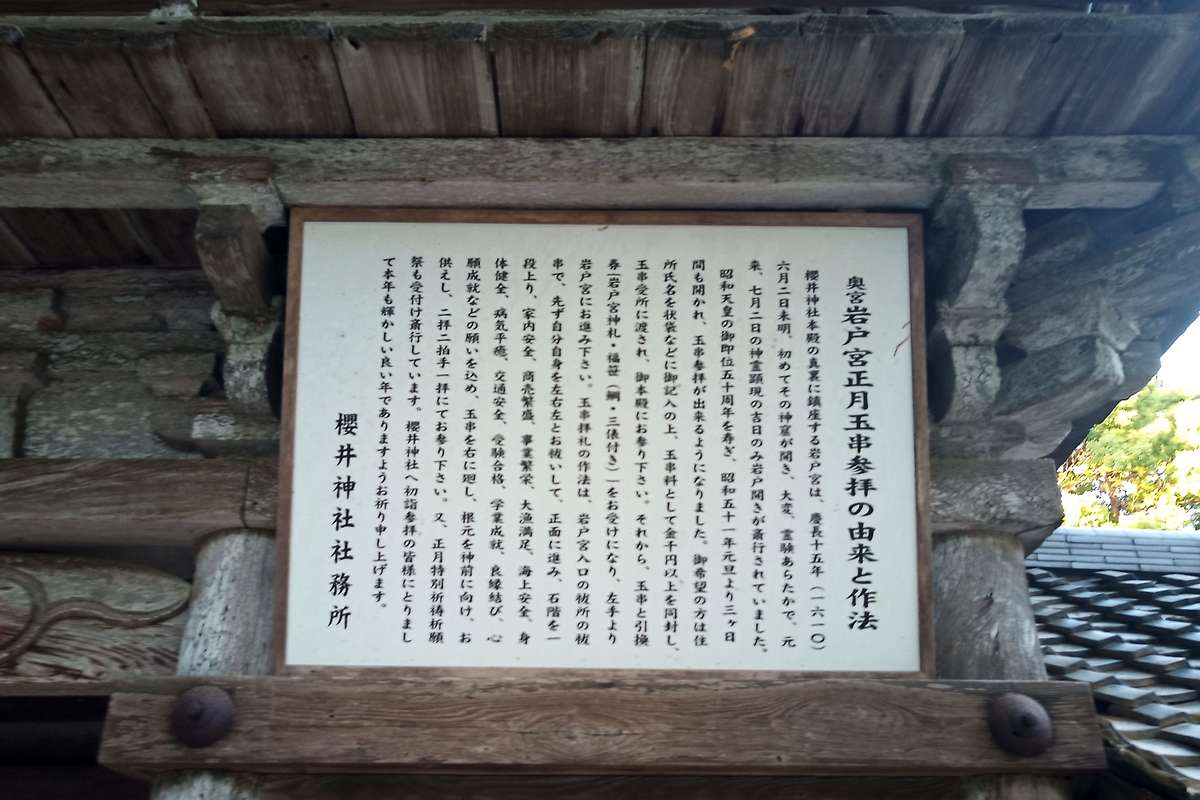 奥宮岩戸宮正月玉串参拝の由来と作法
櫻井神社本殿の真裏に鎮座する岩戸宮は、慶長十五年(一六一〇)
六月二日未明、初めてその神窟が開き、大変、霊験あらたかで、元
来、七月二日の神霊顕現の吉日のみ岩戸開きが斎行されていました。
昭和天皇の御即位五十周年を寿ぎ、昭和五十一年元旦より三ヶ日
間も開かれ、玉串参拝が出来るようになりました。御希望の方は住
所氏名を状袋などに御記入の上、玉串料として金千円以上を同封し、
玉串受所に渡され、御本殿にお参り下さい。それから、玉串と引換
券―岩戸宮神札・福笹(鯛・三俵付き)―をお受けになり、左手より
岩戸宮にお進み下さい。玉串拝礼の作法は、岩戸宮入口の祓所の祓
串で、先ず自分自身を左右左とお祓いして、正面に進み、石階を一
段上り、家内安全、商売繁盛、事業繁栄、大漁満足、海上安全、身
体健全、病気平癒、交通安全、受験合格、学業成就、良縁結び、心
願成就などの願いを込め、玉串を右に廻し、根元を神前に向け、お
供えし、二拝二拍手一拝にてお参り下さい。又、正月特別祈祷祈願
祭も受付け斎行しています。櫻井神社へ初詣参拝の皆様にとりまし
て本年も輝かしい良い年でありますようお祈り申し上げます。
櫻井神社社務所